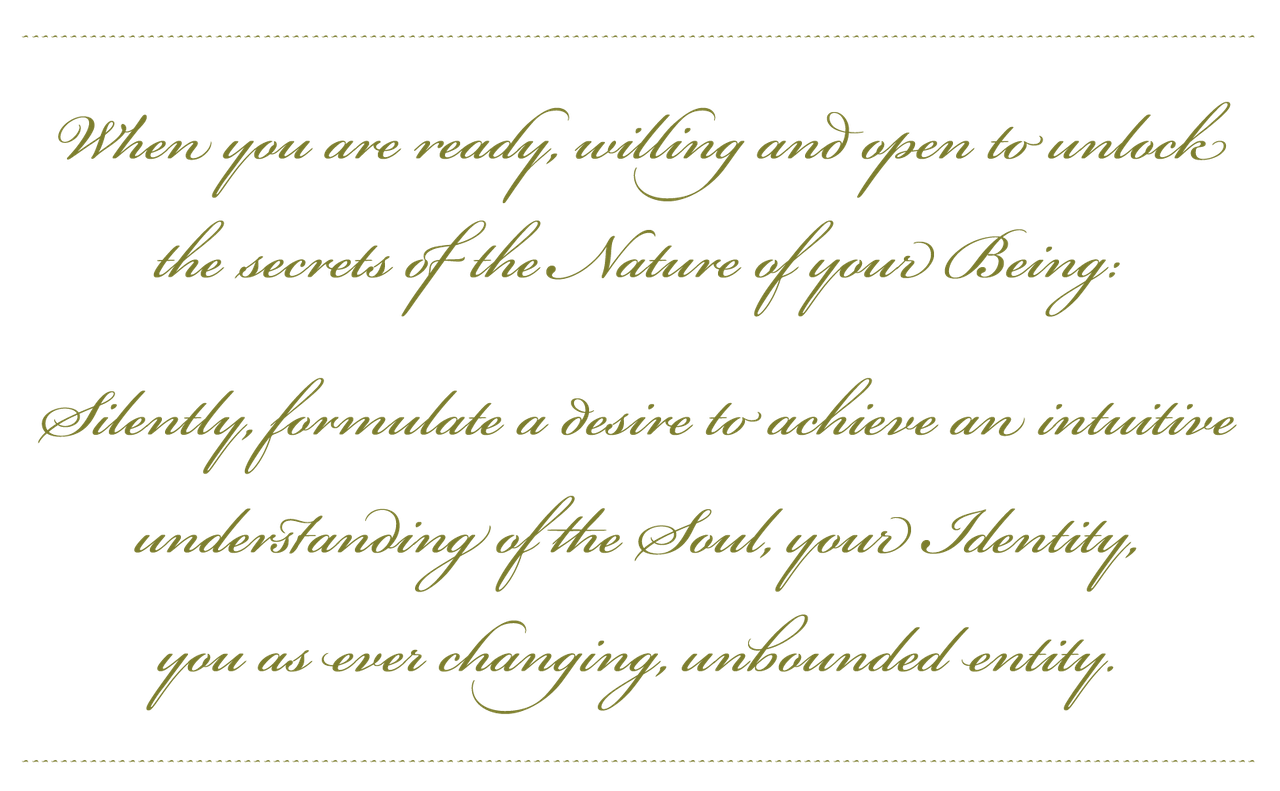 When you are ready, willing and open to unlock
the secrets of the Nature of your Being:
Silently, formulate a desire to achieve an intuitive
understanding of the Soul, your Identity,
you as ever changing, unbounded entity.